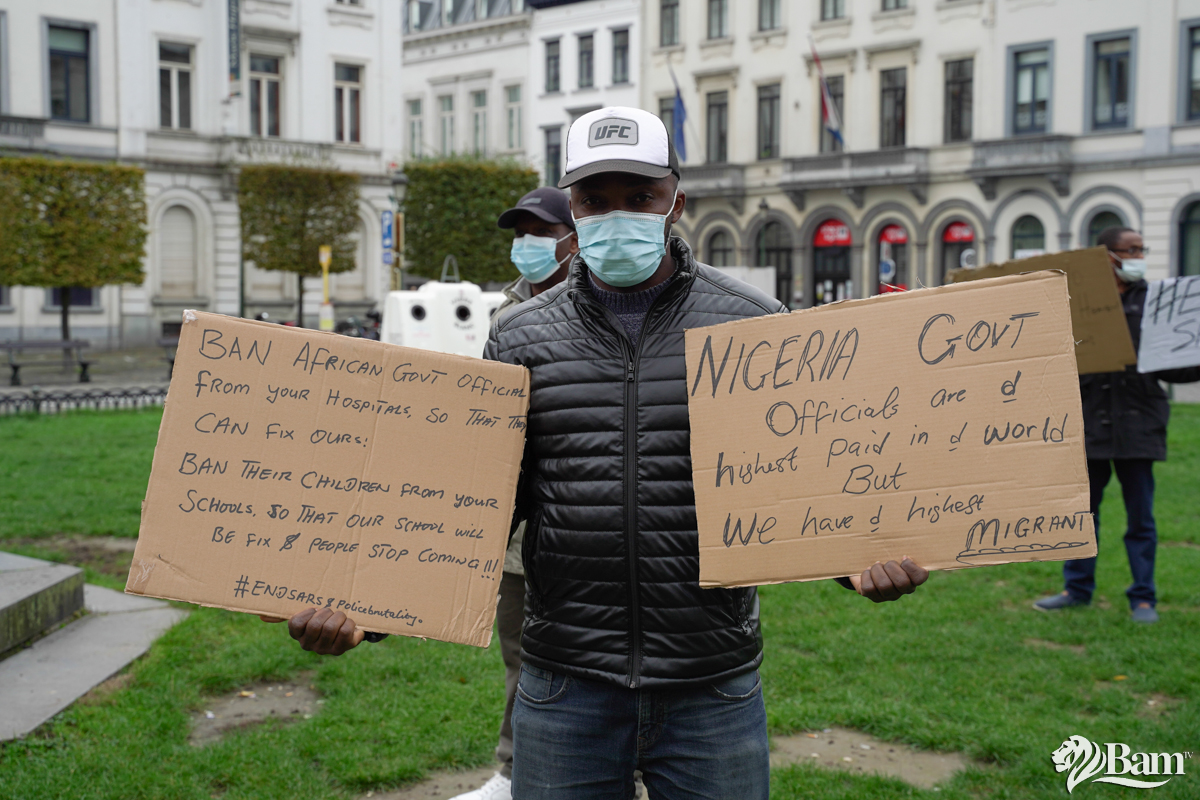 UFC
BAN AFRICAN GOVT OFFICIAL
FROM YOUR HOSPITALS, SO THAT THEY
CAN FIX OURS!
BAN THEIR CHILDREN FROM YOUR
SCHOOLS, SO THAT OUR SCHOOL WILL
BE FIX & PEOPLE STOP COMING!!!
#ENDSARS & Policebrutality.
NIGERIA GOVT
Officials are d
highest paid in d world
But
We have d highest
MIGRANT
P
Bam TV